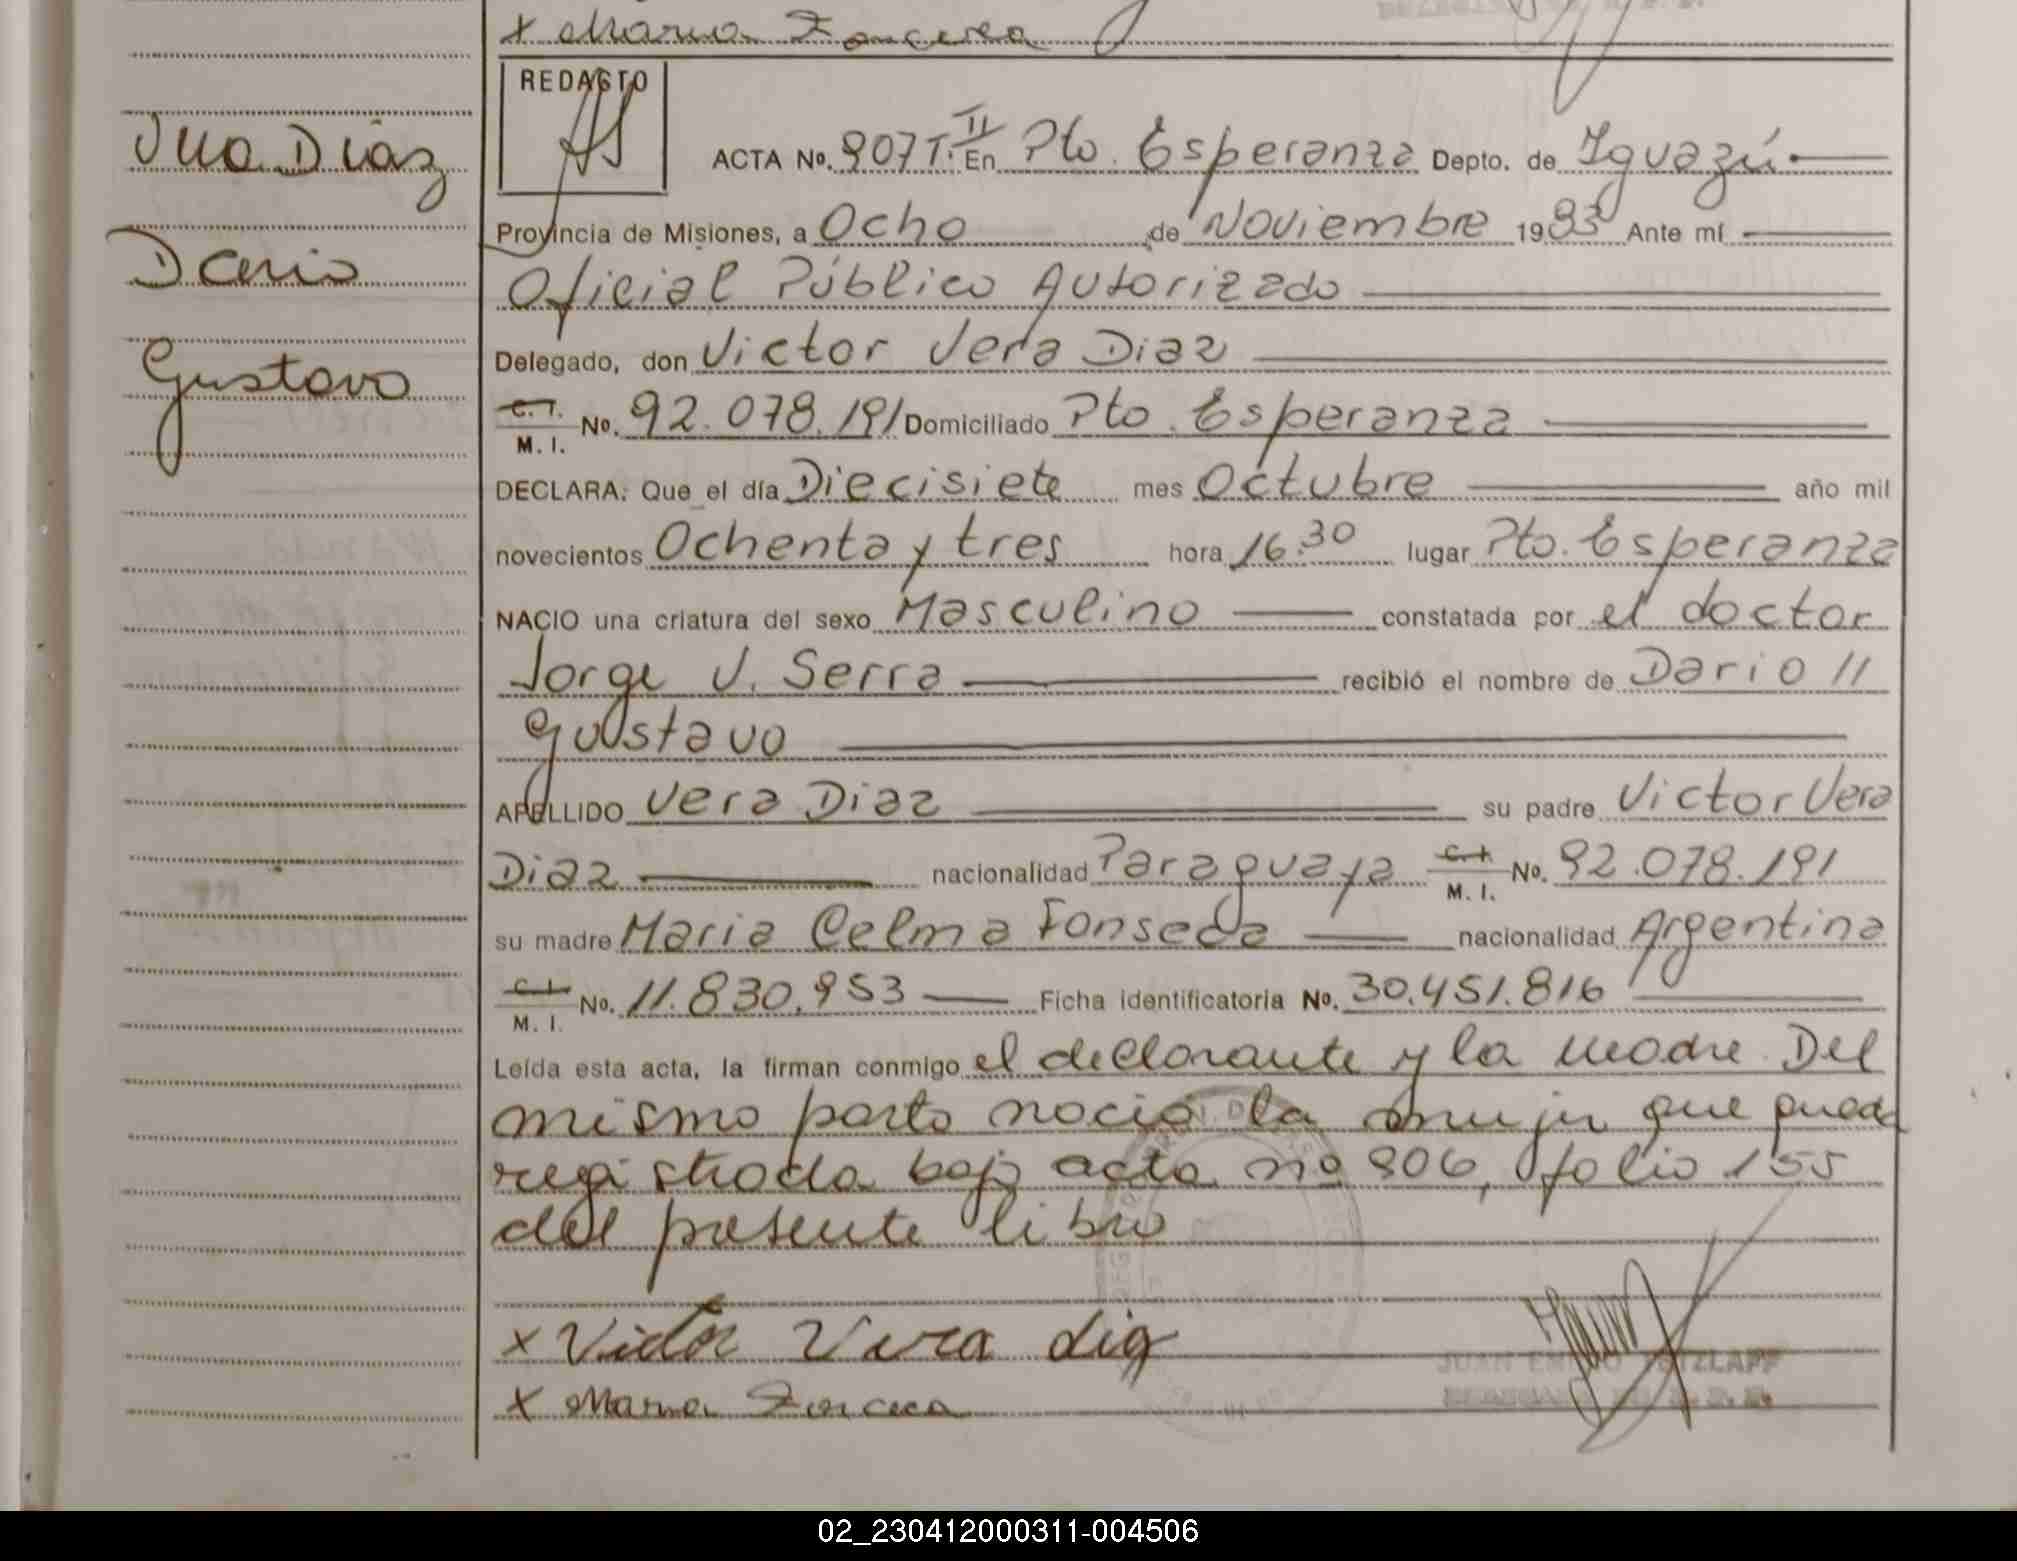 x Maria Fonceca
REDACTO
ACTA No. 907 T. II En Pto. Esperanza Depto. de Iguazú
Vera Diaz
Provincia de Misiones, a Ocho de Noviembre 1983 Ante mí
Dario
Oficial Público Autorizado
Gustavo
Delegado, don Victor Vera Diaz
C. I.
M. I. No. 92.078.191 Domiciliado Pto. Esperanza
DECLARA: Que el día Diecisiete mes Octubre año mil
novecientos Ochenta y tres hora 16.30 lugar Pto. Esperanza
NACIO una criatura del sexo Masculino constatada por el doctor
Jorge V. Serra recibió el nombre de Dario //
Gustavo
APELLIDO Vera Diaz su padre Victor Vera
Diaz nacionalidad Paraguaya C. I. M. I. No. 92.078.191
su madre Maria Celma Fonseca nacionalidad Argentina
C. I. M. I. No. 11.830.953 Ficha identificatoria No. 30.451.816
Leída esta acta, la firman conmigo el declarante y la madre. Del
mismo parto nació la mujer que queda
registrada bajo acta nº 906, folio 155
del presente libro
x Victor Vera Diaz
JUAN EMILIO TETZLAFF
x Maria Fonceca
02_230412000311-004506